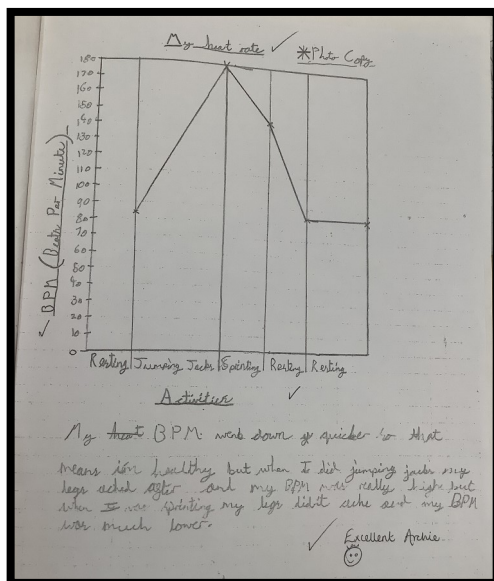 My heart rate
*Photo Copy
180
170
160
150
140
130
120
110
100
90
80
70
60
50
40
30
20
10
0
BPM (Beats Per Minute)
Resting Jumping Jacks Sprinting Resting Resting
Activities
My BPM went down quicker so that
means i'm healthy but when I did jumping jacks my
legs ached after and my BPM was really high but
when I was sprinting my legs didn't ache and my BPM
was much lower.
Excellent Archie